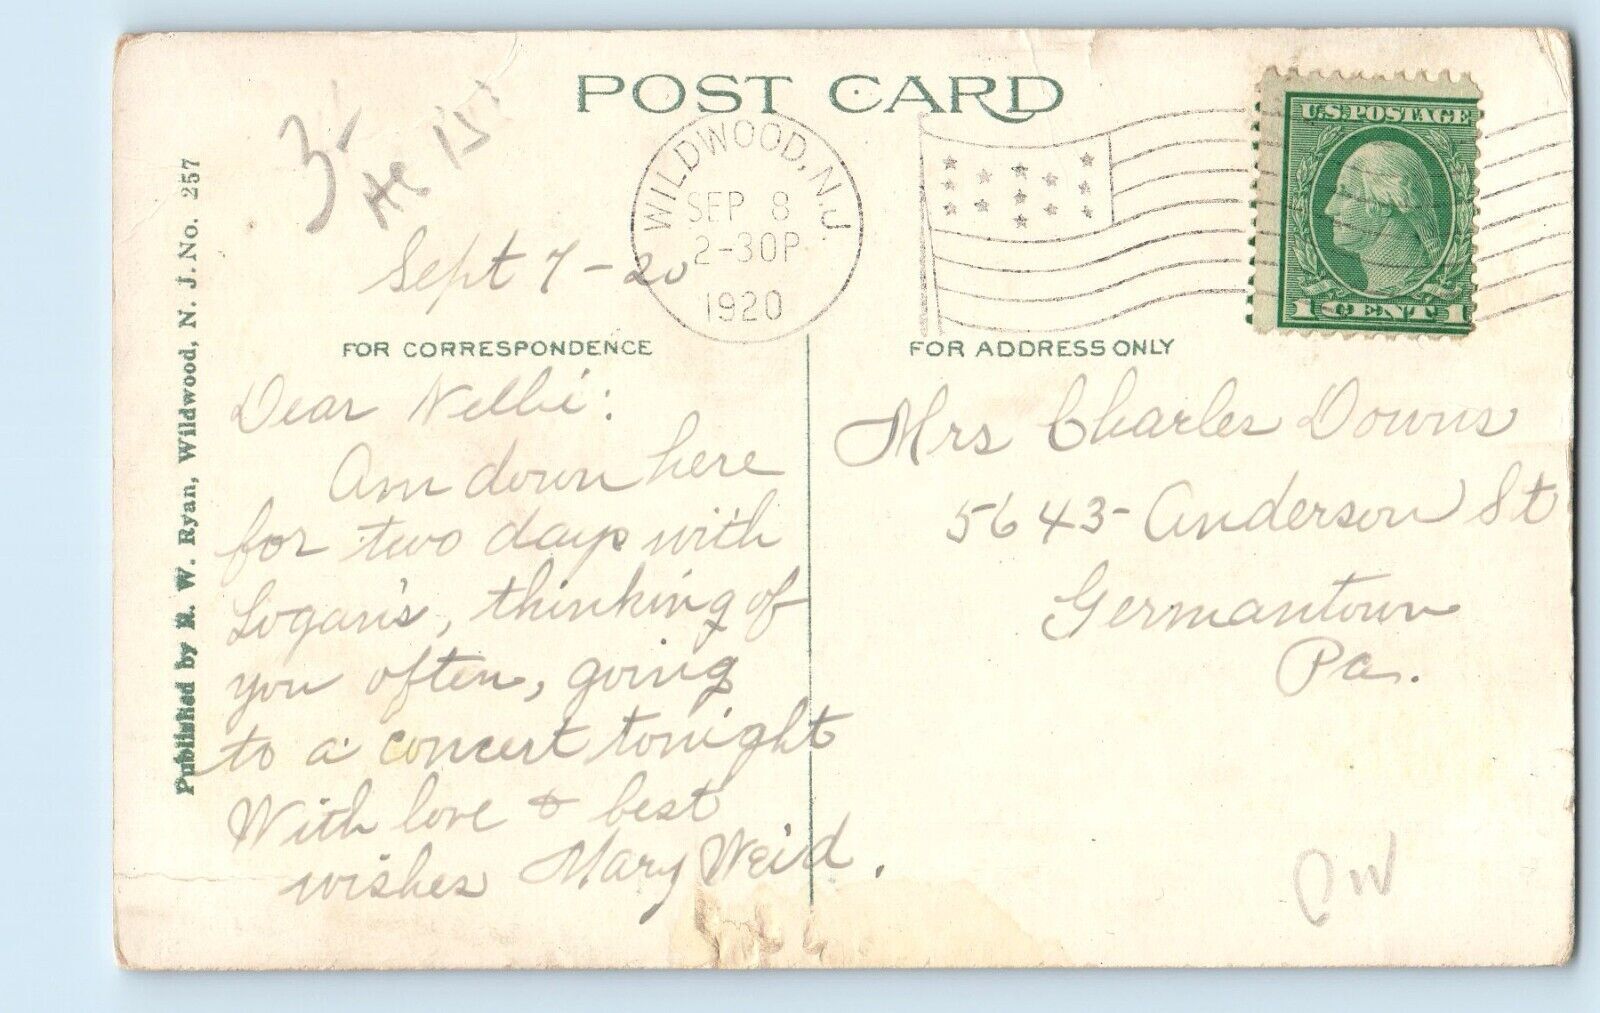 POST CARD
3-
WILDWOOD, N.J.
SEP 8
2-30P
1920
U.S. POSTAGE
1 CENT 1
Published by R. W. Ryan, Wildwood, N. J. No. 257
Sept 7-20
FOR CORRESPONDENCE
Dear Nellie:
Am down here
for two days with
Logan's, thinking of
you often, going
to a concert tonight
With love & best
wishes Mary Weid.
FOR ADDRESS ONLY
Mrs Charles Downs
5643- Anderson St
Germantown
Pa.